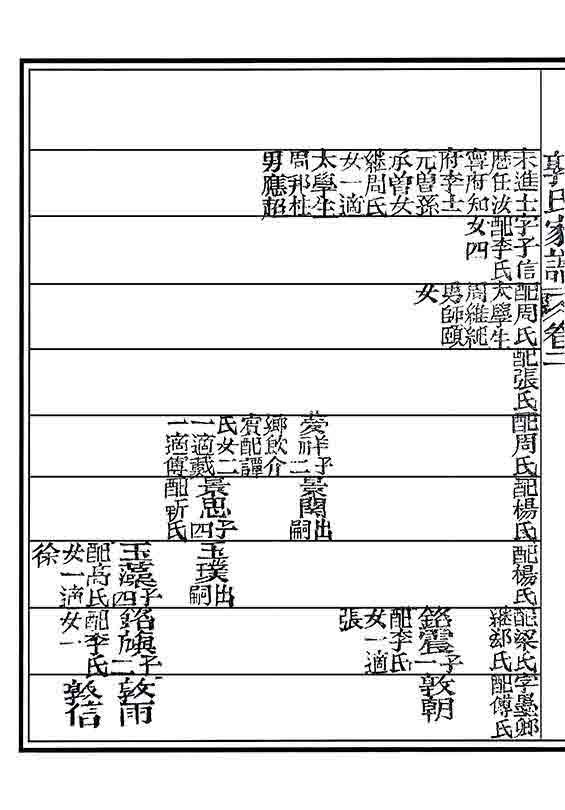 郭氏家譜
卷二
未進士
歷任汝
寧府知
府李士
元曾孫
承曾女
繼周氏
女一適
太學生
周邦杜
男應超
字子信
配李氏
女四
配周氏
太學生
周維統
男師頤
女
配張氏
配周氏
祥子二
鄉飲介
賓配譚
氏女二
一適戴
一適傅
配楊氏
景閣出嗣
景忠子四
配靳氏
配楊氏
玉璞出嗣
玉藻子四
配高氏
女一適
徐
配梁氏
繼郄氏
銘震子一
配李氏
女一適
張
銘旗子二
配李氏
女一
字墨鄉
配傅氏
敦朝
敦雨
敦信